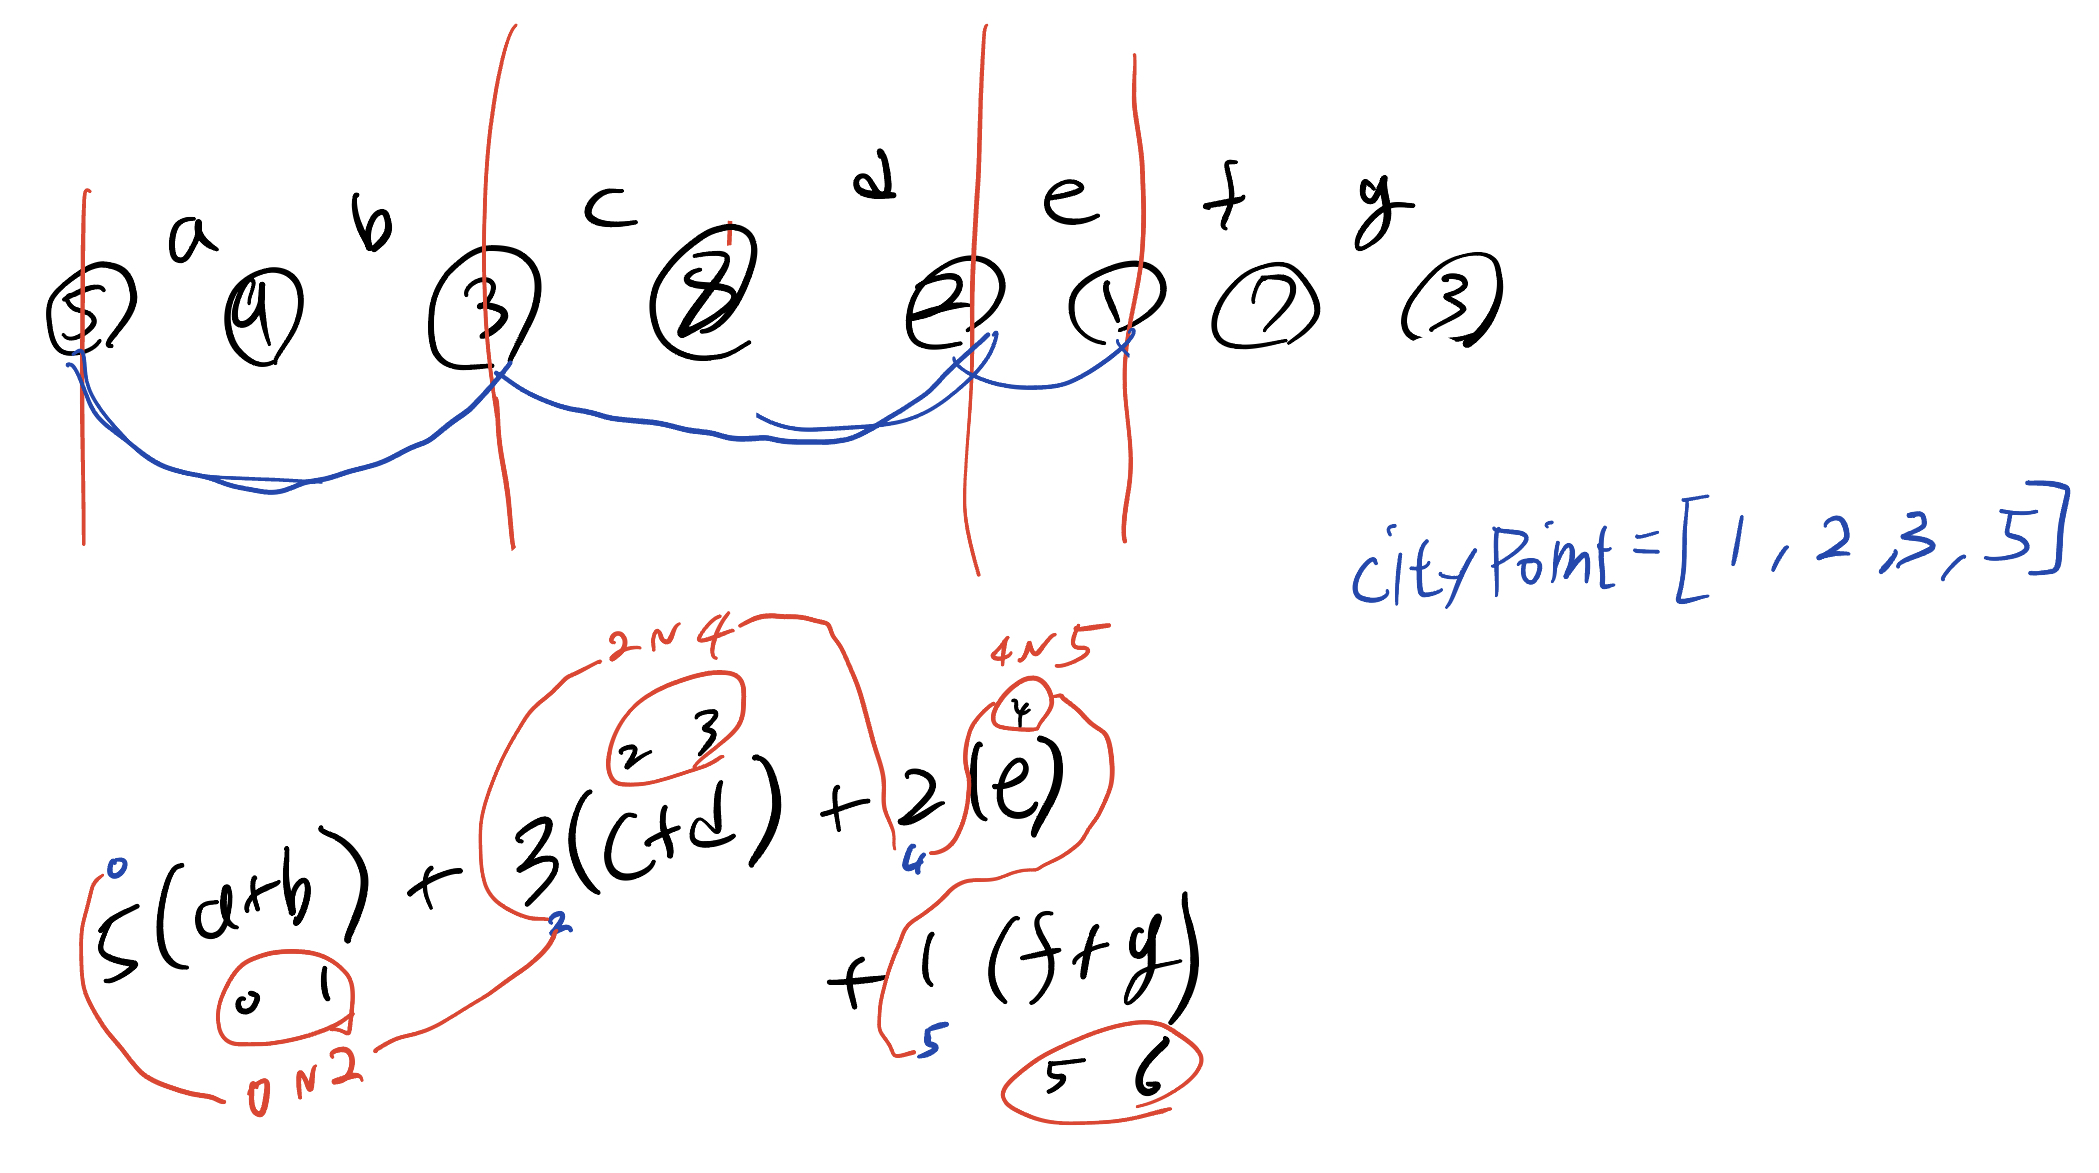 a b c d e f g
5 9 3 8 2 1 7 3
cityPoint = [1, 2, 3, 5]
2 ~ 4 4 ~ 5
2 3 4
5(a+b) + 3(c+d) + 2(e)
0 2 4
+ 1 (f+g)
0 1 5 5 6
0 ~ 2